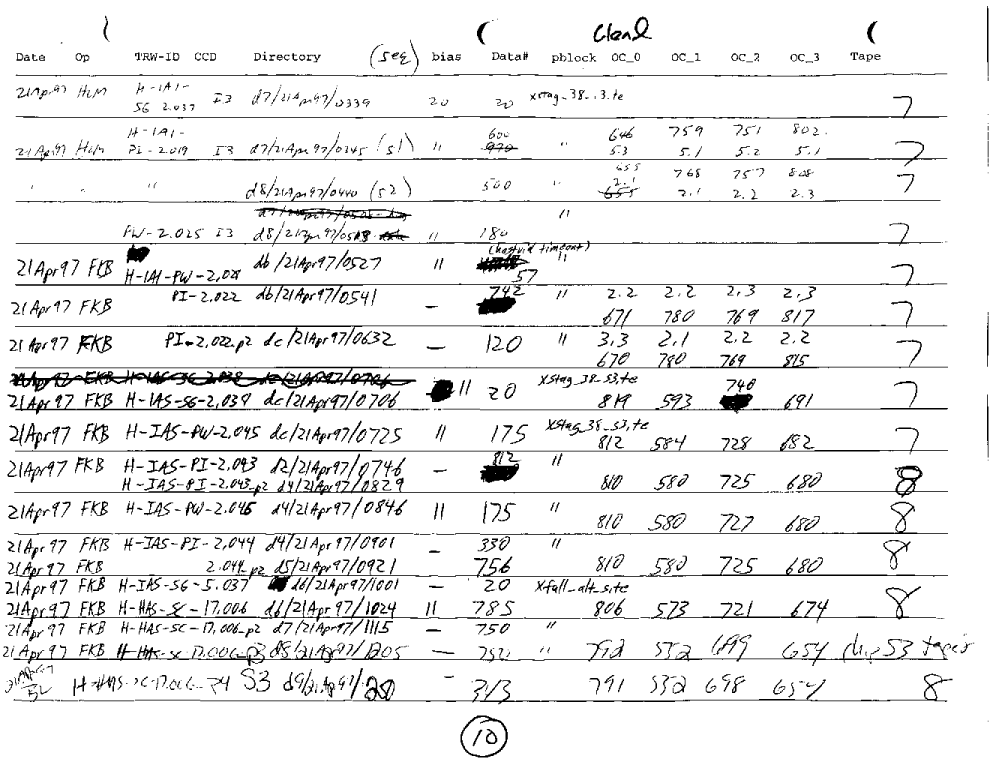 Clend
Date Op TRW-ID CCD Directory (seq) bias Data# pblock OC_0 OC_1 OC_2 OC_3 Tape
21Apr97 HLM H-IAI-
SG 2.037 I3 d7/21Apr97/0339 20 20 7
H-IAI- 600 646 759 751 802
21Apr97 HLM PI-2.019 I3 d7/21Apr97/0345 (s1) " 970 " 5.3 5.1 5.2 5.1 7
655 768 757 808
" " " d8/21Apr97/0440 (s2) 500 " 2.1 2.1 2.2 2.3 7
655
"
PW-2.025 I3 d8/21Apr97/ " 180 7
(hastvid timeout)
21Apr97 FKB H-IAI-PW-2.028 db/21Apr97/0527 " 57 " 7
PI-2.022 db/21Apr97/0541 742 " 2.2 2.2 2.3 2.3
21Apr97 FKB – 671 780 769 817 7
21Apr97 FKB PI-2.022_p2 dc/21Apr97/0632 – 120 " 3.3 2.1 2.2 2.2
670 780 769 815 7
21Apr97 FKB H-IAS-SG-2.038 dc/21Apr97/0706 Xstag_38_s3.te 740
21Apr97 FKB H-IAS-SG-2.039 dc/21Apr97/0706 " 20 819 593 691 7
21Apr97 FKB H-IAS-PW-2.045 dc/21Apr97/0725 " 175 Xstag_38_s3.te 812 584 728 682 7
812
21Apr97 FKB H-IAS-PI-2.043 d2/21Apr97/0746 – "
H-IAS-PI-2.043_p2 d4/21Apr97/0829 810 580 725 680 8
21Apr97 FKB H-IAS-PW-2.046 d4/21Apr97/0846 " 175 " 810 580 727 680 8
21Apr97 FKB H-IAS-PI-2.044 d4/21Apr97/0901 – 330 "
21Apr97 FKB 2.044_p2 d5/21Apr97/0921 – 756 810 580 725 680 8
21Apr97 FKB H-IAS-SG-5.037 d6/21Apr97/1001 – 20 Xfull_alt_site
21Apr97 FKB H-HAS-SC-17.006 d6/21Apr97/1024 " 785 806 573 721 674 8
21Apr97 FKB H-HAS-SC-17.006_p2 d7/21Apr97/1115 – 750 "
21Apr97 FKB H-HAS-SC-17.006_p3 d8/21Apr97/1205 – " 792 552 699 654 53 tapes
H-HAS-SC-17.006_P4 S3 d9/21Apr97/ – 343 791 552 698 654 8
10